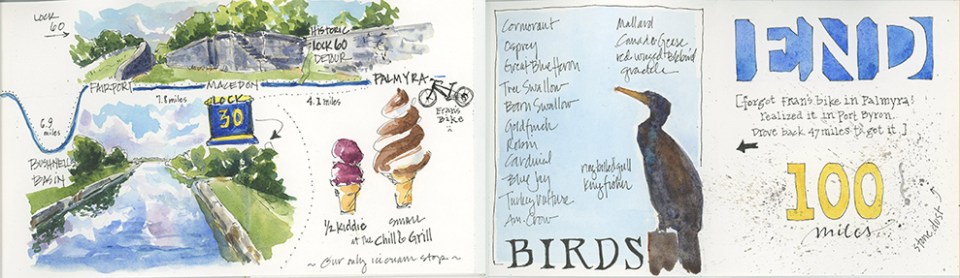 LOCK
60
HISTORIC
LOCK 60
DETOUR
FAIRPORT
7.8 miles
MACEDON
4.2 miles
PALMYRA
Fran's
Bike
LOCK
30
6.9
miles
BUSHNELL'S
BASIN
1/2 Kiddie
small
at the Chill & Grill
~ Our only ice cream stop ~
Cormorant
Osprey
Great Blue Heron
Tree Swallow
Barn Swallow
Goldfinch
Robin
Cardinal
Blue Jay
Turkey Vulture
Am. Crow
Mallard
Canada Geese
red winged blackbird
grackle
ring billed gull
Kingfisher
BIRDS
END
[forgot Fran's bike in Palmyra!
Realized it in Port Byron.
Drove back 47 miles to get it.]
100
miles
stone dust